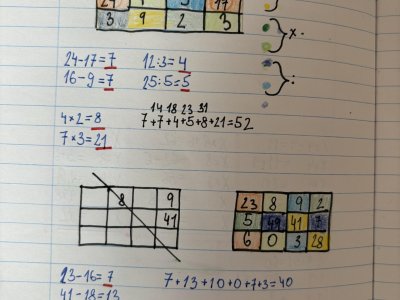 24 1 5 17
3 9 2 3
x.
:
24-17=7 12:3=4
16-9=7 25:5=5
14 18 23 31
4×2=8 7+7+4+5+8+21=52
7×3=21
8 9
41
23 8 9 2
5 49 41 7
6 0 3 28
23-16=7 7+13+10+0+7+3=40
41-18=13